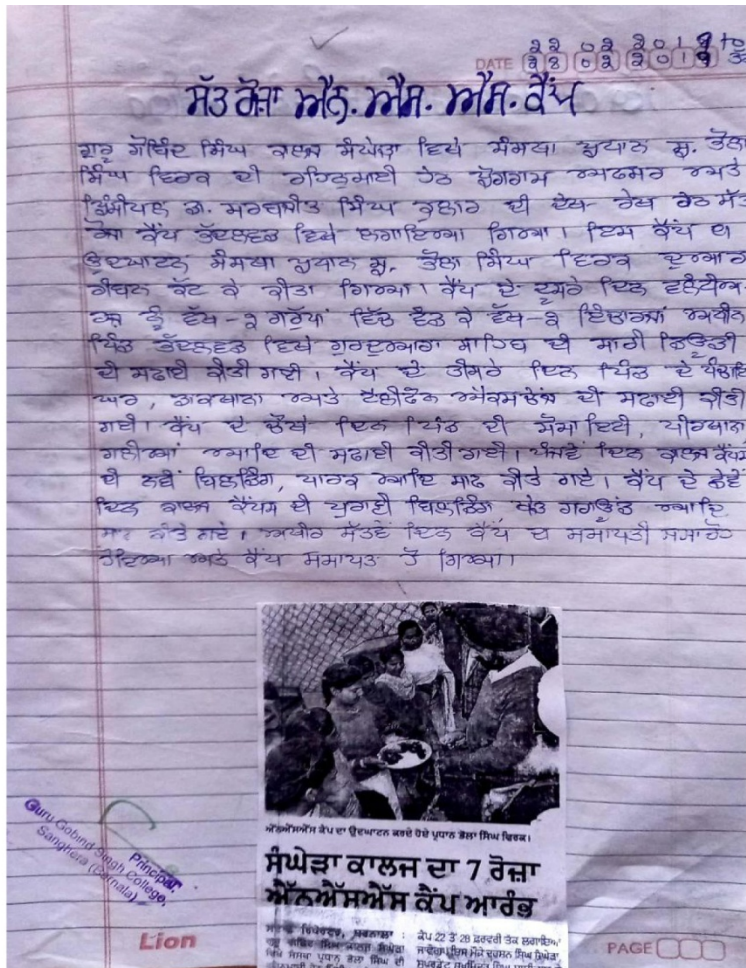 DATE 22 02 2019 to
28 02 2019 ਤੱਕ
ਸੱਤ ਰੋਜ਼ਾ ਐਨ.ਐਸ.ਐਸ. ਕੈਂਪ
ਗੁਰੂ ਗੋਬਿੰਦ ਸਿੰਘ ਕਾਲਜ ਸੰਘੇੜਾ ਵਿਖੇ ਸੰਸਥਾ ਪ੍ਰਧਾਨ ਸ੍ਰ. ਭੋਲਾ
ਸਿੰਘ ਵਿਰਕ ਦੀ ਰਹਿਨੁਮਾਈ ਹੇਠ ਪ੍ਰੋਗਰਾਮ ਅਫਸਰ ਅਤੇ
ਪ੍ਰਿੰਸੀਪਲ ਡਾ. ਸਰਬਜੀਤ ਸਿੰਘ ਕੁਲਾਰ ਦੀ ਦੇਖ-ਰੇਖ ਹੇਠ ਸੱਤ
ਰੋਜਾ ਕੈਂਪ ਭੱਦਲਵਡ ਵਿਖੇ ਲਗਾਇਆ ਗਿਆ। ਇਸ ਕੈਂਪ ਦਾ
ਉਦਘਾਟਨ ਸੰਸਥਾ ਪ੍ਰਧਾਨ ਸ੍ਰ. ਭੋਲਾ ਸਿੰਘ ਵਿਰਕ ਦੁਆਰਾ
ਰੀਬਨ ਕੱਟ ਕੇ ਕੀਤਾ ਗਿਆ। ਕੈਂਪ ਦੇ ਦੂਸਰੇ ਦਿਨ ਵਲੰਟੀਅ-
ਰਜ਼ ਨੂੰ ਵੱਖ-੨ ਗਰੁੱਪਾਂ ਵਿੱਚ ਵੰਡ ਕੇ ਵੱਖ-੨ ਇੰਚਾਰਜਾਂ ਅਧੀਨ
ਪਿੰਡ ਭੱਦਲਵਡ ਵਿਖੇ ਗੁਰਦੁਆਰਾ ਸਾਹਿਬ ਦੀ ਸਾਰੀ
ਦੀ ਸਫਾਈ ਕੀਤੀ ਗਈ। ਕੈਂਪ ਦੇ ਤੀਸਰੇ ਦਿਨ ਪਿੰਡ ਦੇ ਪੰਚਾਇ
ਘਰ, ਡਾਕਖਾਨਾ ਅਤੇ ਟੈਲੀਫੋਨ ਐਕਸਚੇਂਜ ਦੀ ਸਫਾਈ ਕੀਤੀ
ਗਈ। ਕੈਂਪ ਦੇ ਚੌਥੇ ਦਿਨ ਪਿੰਡ ਦੀ ਸੋਸਾਇਟੀ, ਪੀਰਖਾਨਾ
ਗਲੀਆਂ ਆਦਿ ਦੀ ਸਫਾਈ ਕੀਤੀ ਗਈ। ਪੰਜਵੇਂ ਦਿਨ ਕਾਲਜ ਕੈਂਪਸ
ਦੀ ਨਵੀਂ ਬਿਲਡਿੰਗ, ਪਾਰਕ ਆਦਿ ਸਾਫ ਕੀਤੇ ਗਏ। ਕੈਂਪ ਦੇ ਛੇਵੇਂ
ਦਿਨ ਕਾਲਜ ਕੈਂਪਸ ਦੀ ਪੁਰਾਣੀ ਬਿਲਡਿੰਗ ਖੇਡ ਗਰਾਊਂਡ ਆਦਿ
ਸਾਫ ਕੀਤੇ ਗਏ। ਅਖੀਰ ਸੱਤਵੇਂ ਦਿਨ ਕੈਂਪ ਦਾ ਸਮਾਪਤੀ ਸਮਾਰੋਹ
ਹੋਇਆ ਅਤੇ ਕੈਂਪ ਸਮਾਪਤ ਹੋ ਗਿਆ।
ਐੱਨਐੱਸਐੱਸ ਕੈਂਪ ਦਾ ਉਦਘਾਟਨ ਕਰਦੇ ਹੋਏ ਪ੍ਰਧਾਨ ਭੋਲਾ ਸਿੰਘ ਵਿਰਕ।
ਸੰਘੇੜਾ ਕਾਲਜ ਦਾ 7 ਰੋਜ਼ਾ
ਐੱਨਐੱਸਐੱਸ ਕੈਂਪ ਆਰੰਭ
ਰਿਪੋਰਟਰ, ਬਰਨਾਲਾ :
ਗੁਰੂ ਗੋਬਿੰਦ ਸਿੰਘ ਕਾਲਜ ਸੰਘੇੜਾ
ਵਿਖੇ ਸੰਸਥਾ ਪ੍ਰਧਾਨ ਭੋਲਾ ਸਿੰਘ ਦੀ
ਕੈਂਪ 22 ਤੋਂ 28 ਫ਼ਰਵਰੀ ਤੱਕ ਲਗਾਇਆ
ਜਾਵੇਗਾ। ਇਸ ਮੌਕੇ ਦਰਸ਼ਨ ਸਿੰਘ ਸੰਘੇੜਾ
Principal,
Guru Gobind Singh College,
Sanghera (Barnala)
Lion
PAGE